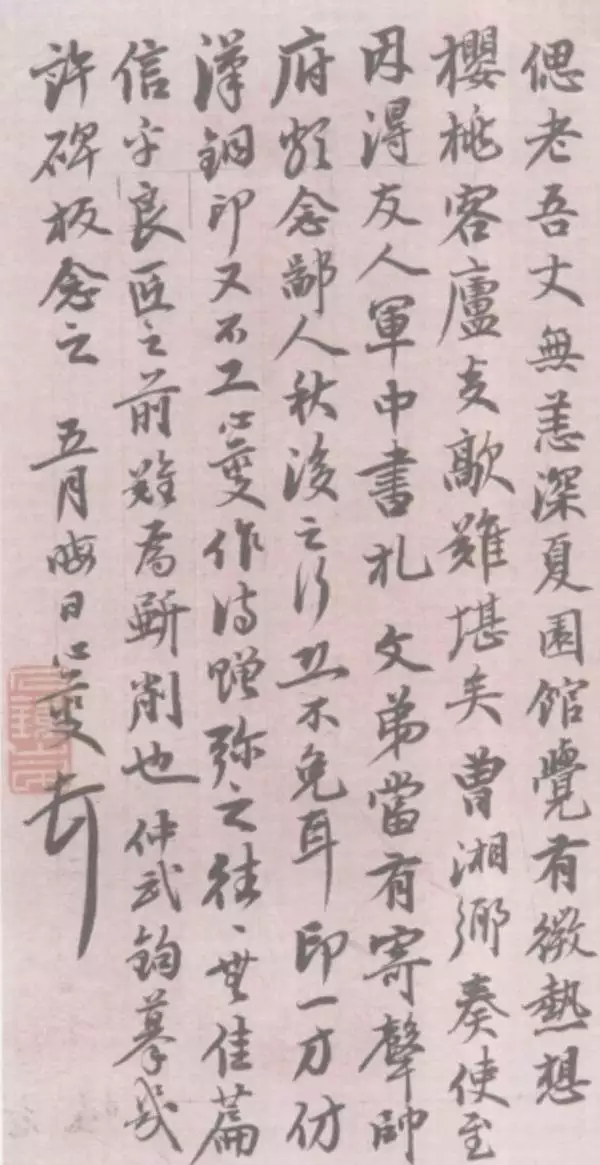 偲老吾丈無恙深夏園館覺有微熱想
櫻桃客廬炎歊難堪矣曹湘鄉奏使至
因得友人軍中書札文弟當有寄聲帥
府頗念鄙人秋後之行恐不免耳印一方仿
漢銅印又不工心夔作詩贈弥之往〻無佳篇
信乎良匠之前難為斲削也仲武鉤摹幾
許碑板念之 五月晦日心夔頓首